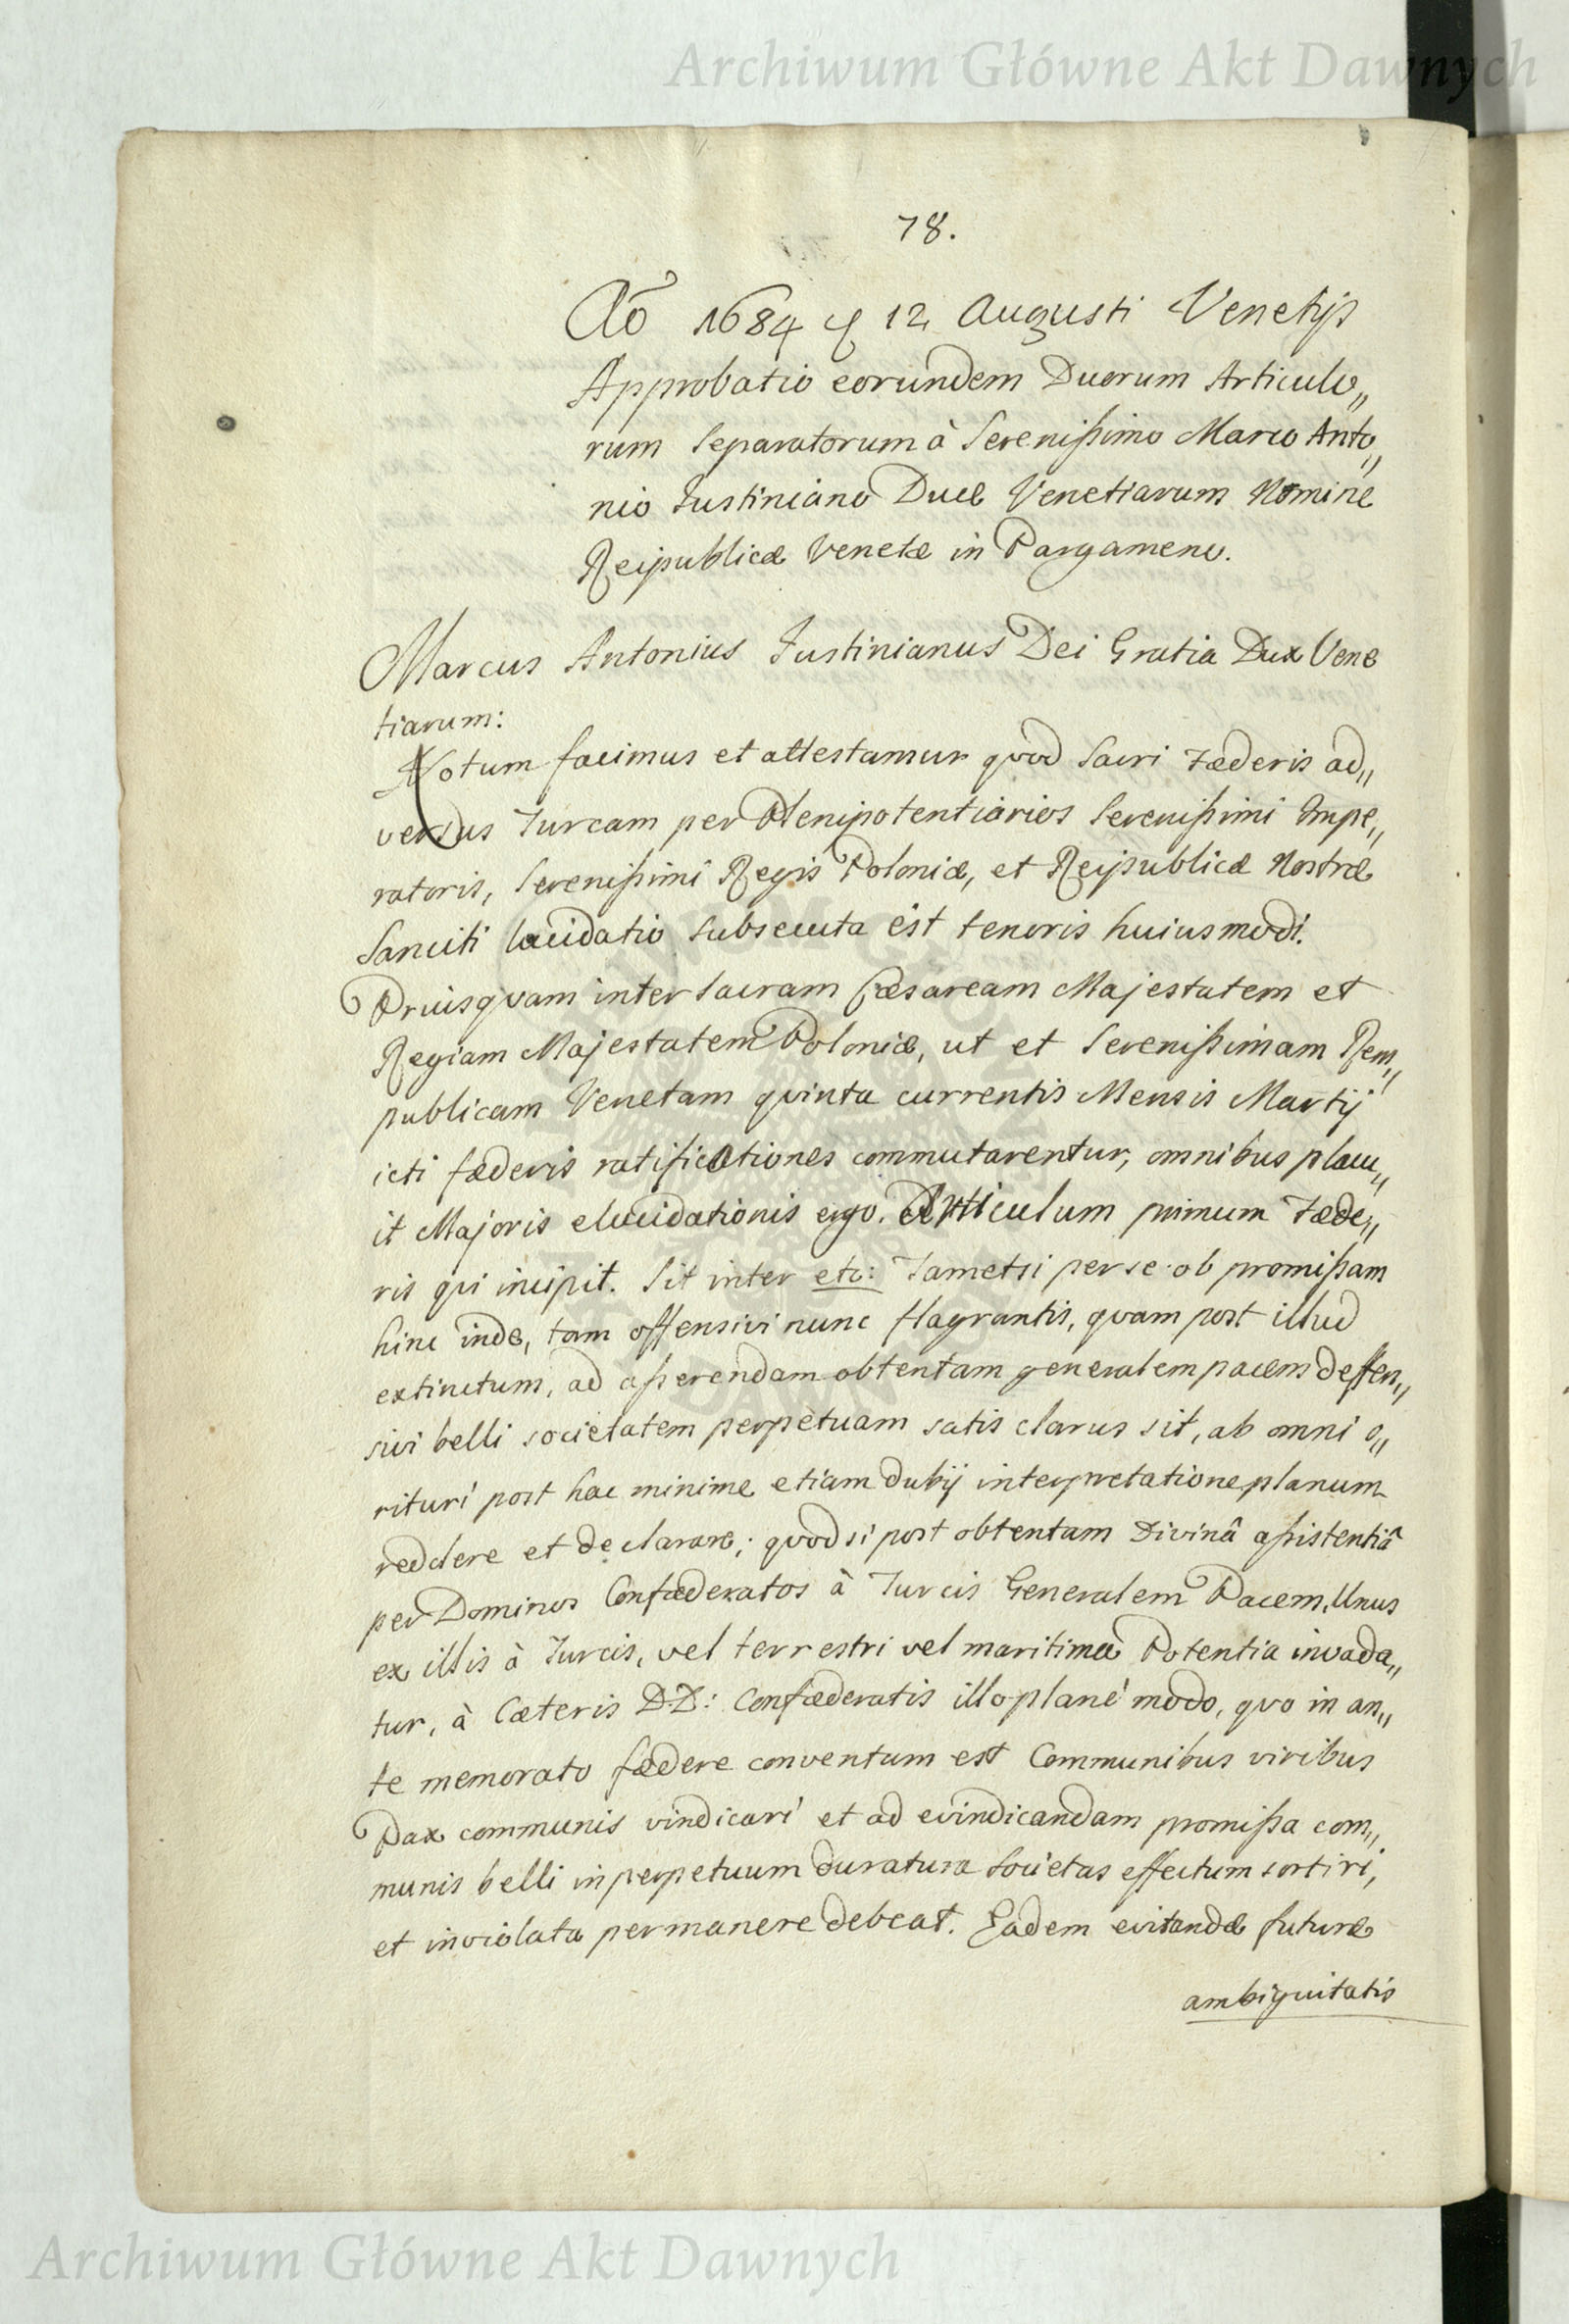 Archiwum Główne Akt Dawnych
78.
Aō 1684 y 12 Augusti Venetijs
Approbatio eorundem Duorum Articulo„
rum Separatorum à Serenißimo Marco Anto„
nio Justiniano Duce Venetiarum Nomine
Reipublicæ Venetæ in Pargameno.
Marcus Antonius Justinianus Dei Gratia Dux Vene
tiarum:
Notum facimus et attestamur quod Sacri Fæderis ad„
versus Turcam per Plenipotentiarios Serenißimi Impe„
ratoris, Serenißimi Regis Poloniæ, et Reipublicæ Nostræ
Sanciti lucidatio subsecuta est tenoris huiusmodi.
Priusqvam inter Sacram Cæsaream Majestatem et
Regiam Majestatem Poloniæ, ut et Serenißimam Rem„
publicam Venetam qvinta currentis Mensis Martij
icti fæderis ratificationes commutarentur, omnibus placu„
it Majoris elucidationis ergo. Articulum primum Fæde„
ris qui incipit. Sit inter etc: Tametsi per se ob promißam
hinc inde, tam offensivi nunc flagrantis, qvam post illud
extinctum, ad aßerendam obtentam generalem pacem deffen„
sivi belli societatem perpetuam satis clarus sit, ab omni o„
rituri post hac minime etiam dubij interpretatione planum
reddere et declarare; qvod si post obtentam Divinâ aßistentiâ
per Dominos Confæderatos à Turcis Generalem Pacem, Unus
ex illis à Turcis, vel terrestri vel maritima Potentia invada„
tur, à Cæteris DD: Confæderatis illo plané modo, quo in an„
te memorato fædere conventum est Communibus viribus
Pax communis vindicari et ad evindicandam promißa com„
munis belli in perpetuum duratura Societas effectum sortiri,
et inviolata permanere debeat. Eadem evitandæ futuræ
ambiguitatis
Archiwum Główne Akt Dawnych